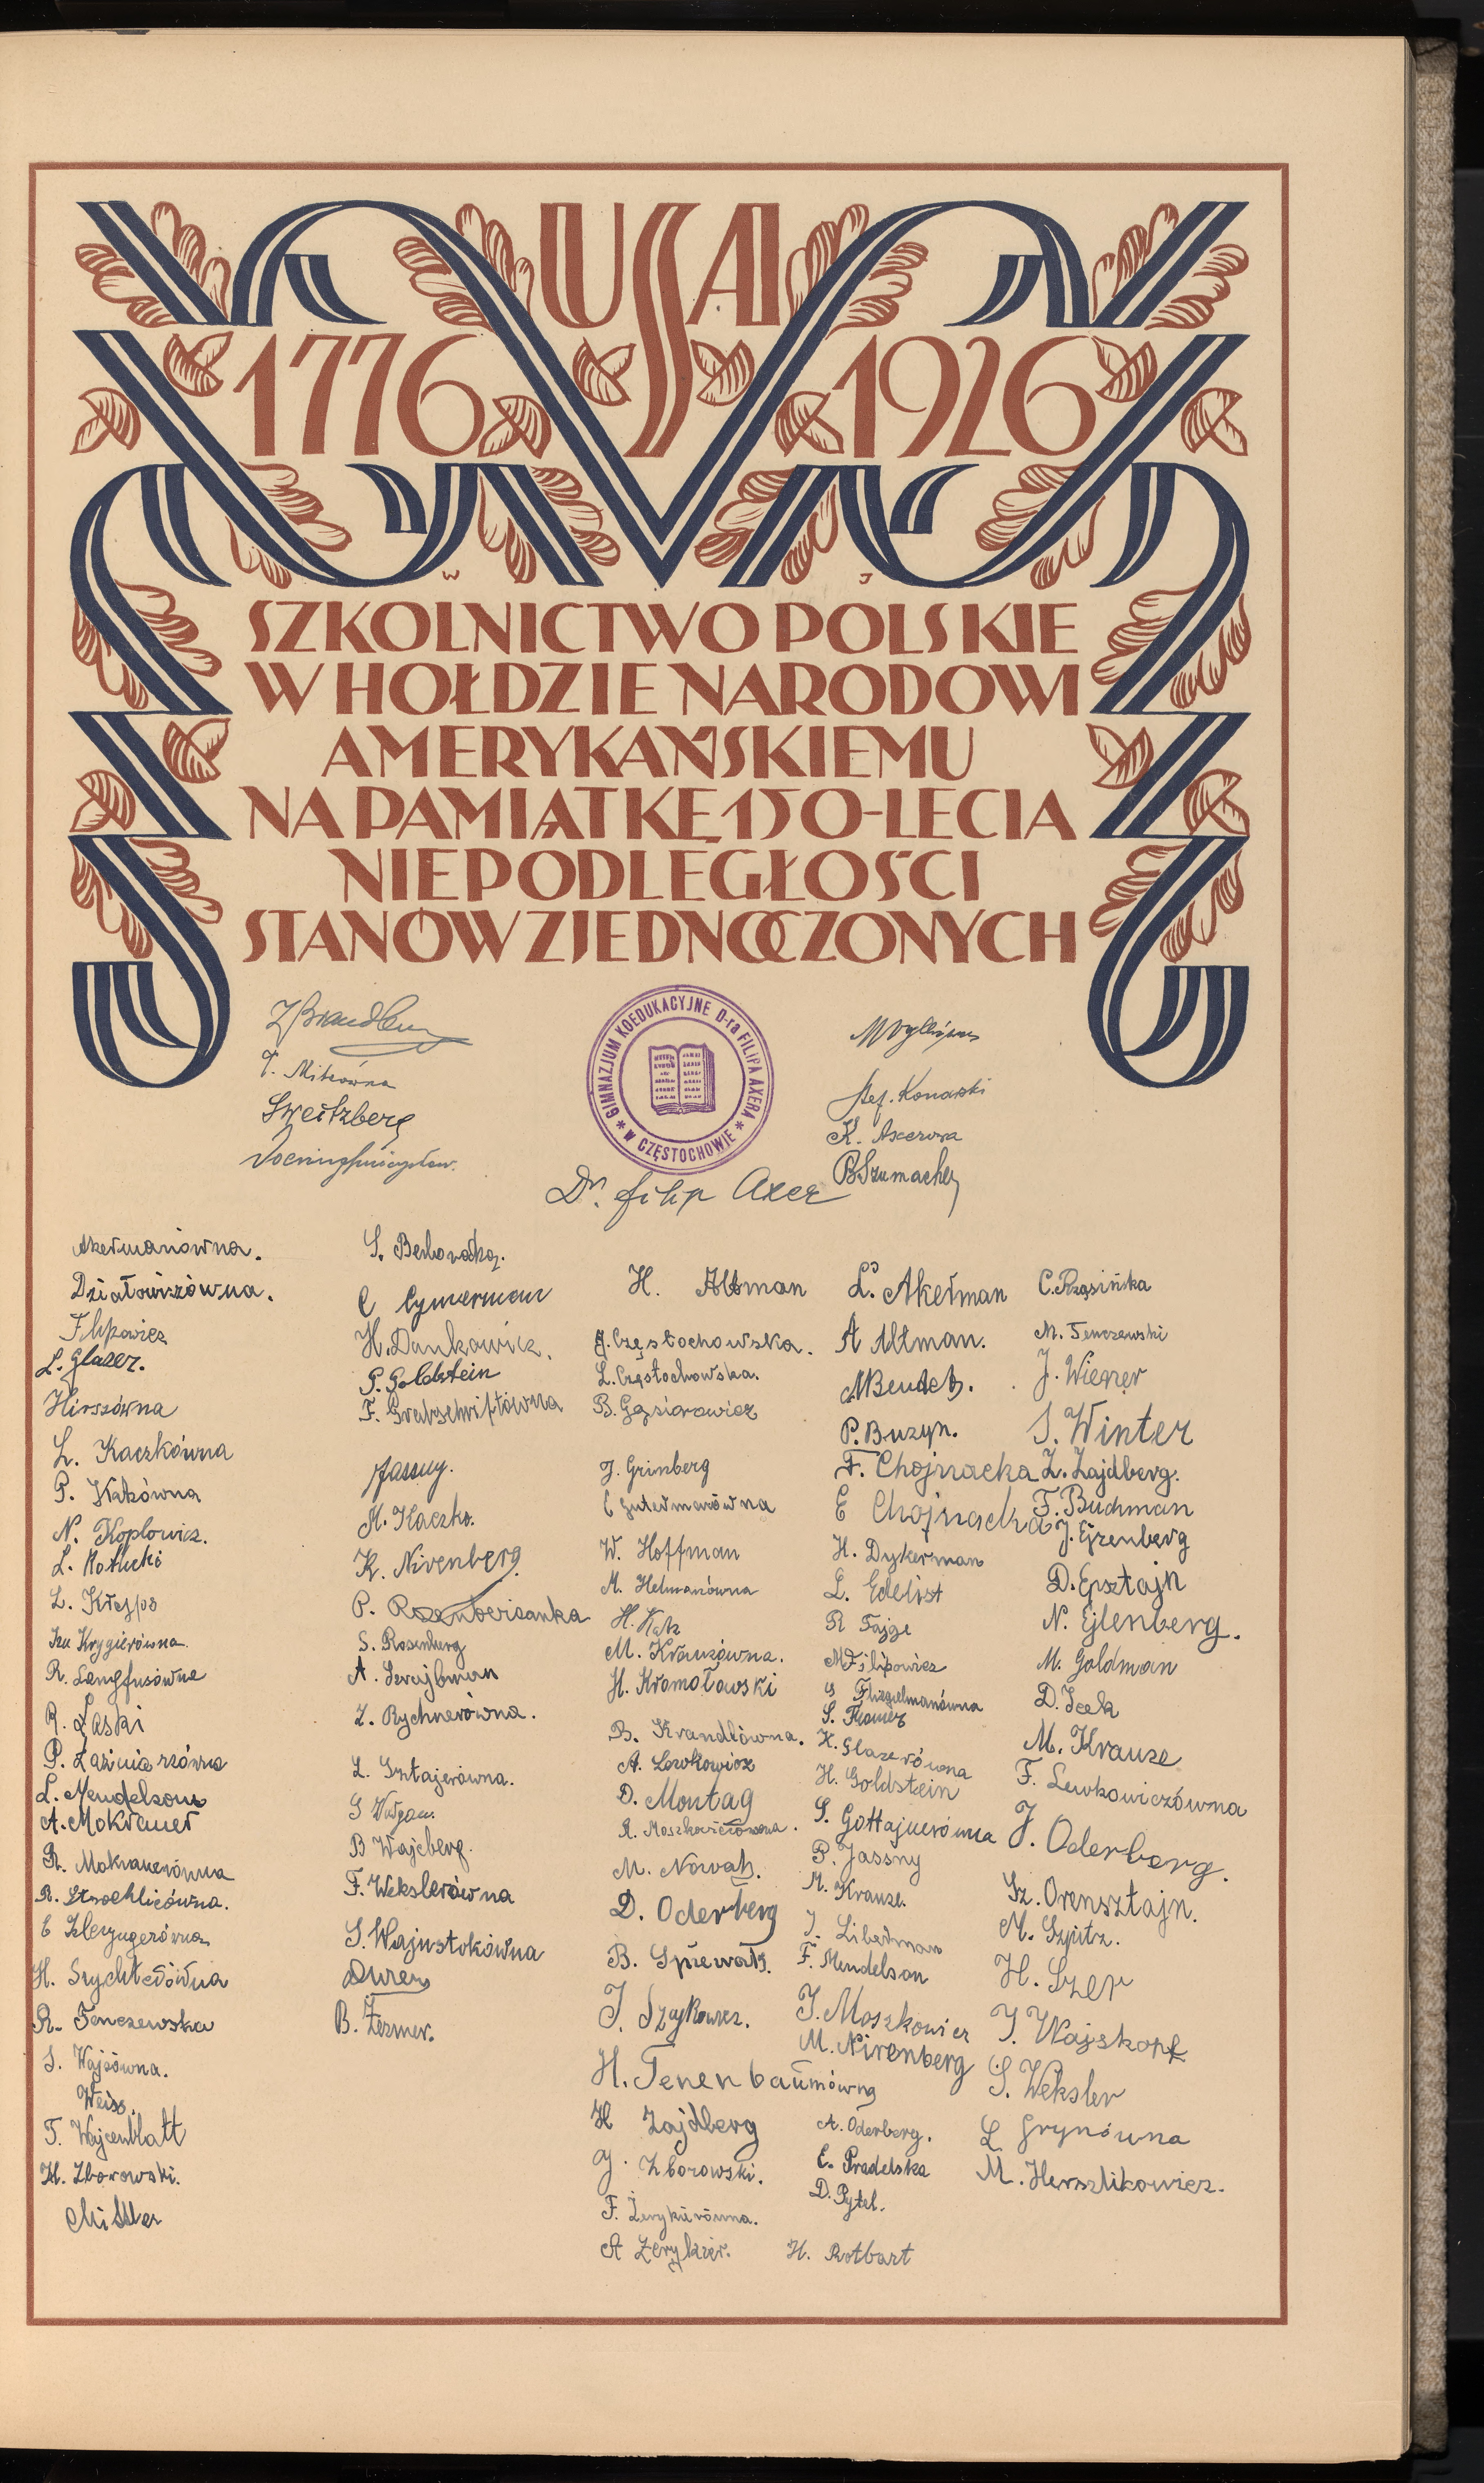 USA
1776 1926
W J
SZKOLNICTWO POLSKIE
W HOŁDZIE NARODOWI
AMERYKAŃSKIEMU
NA PAMIĄTKĘ 150-LECIA
NIEPODLEGŁOŚCI
STANÓW ZJEDNOCZONYCH
GIMNAZJUM KOEDUKACYJNE D-ra FILIPA AXERA
* W CZĘSTOCHOWIE *
Mitrówna
Szeitzberg
Stef. Konarski
K. Axerowa
B Szumacher
Dr. Filip Axer
Akermanówna.
Działowiczówna.
Filipowicz
L. Glazer.
Hirszówna
L. Kaczkówna
P. Katzówna
N. Koplowicz.
L. Kotlicki
Iza Krygierówna
R. Langfusówna
R. Łaski
P. Łaźnierzówna
L. Mendelson
A. Mokrauer
R. Mokrauerówna
E Szlezyngerówna
H. Szychterówna
R. Tenczewska
S. Wajsówna.
Weiss.
T. Wajcenblatt
H. Zborowski.
S. Berkowska.
C Cymerman
H. Dankowicz.
P. Goldstein
Jassny.
M. Kaczko.
K. Nirenberg.
P. Rozenbersanka
S. Rosenberg
A. Szrajbman
Z. Rychnerówna.
L. Sztajerówna.
B Wajcberg.
F. Wekslerówna
S. Wajnsztokówna
B. Zezmer.
H. Altman
J. Częstochowska.
L. Częstochowska.
B. Gąsiorowicz
J. Grinberg
C Gutermanówna
W. Hoffman
M. Helmanówna
H. Katz
M. Krauzówna.
H. Kromołowski
B. Krandlówna.
A. Lewkowicz
D. Montag
R. Moszkowiczówna.
M. Nowak.
D. Oderberg
B. Śpiewak.
J. Szajkowicz.
H. Tenenbaumówna
H Zajdberg
J. Zborowski.
F. Żerykierówna.
A Żerykier.
L. Akerman
A Altman.
M Bendet.
P. Buzyn.
F. Chojnacka
E Chojnacka
H. Dykerman
L. Edelist
R Fajge
M Filipowicz
G Fliegelmanówna
S. Framer
K. Glazerówna
H. Goldstein
S. Gottajnerówna
P. Jassny
M. Krauze.
J. Liberman
F. Mendelson
J. Moszkowicz
M. Nirenberg
A. Oderberg.
E. Pradelska
D. Pytel.
H. Rotbart
C. Rząsińka
M. Tenczewski
J. Wiegner
S. Winter
Z. Zajdberg.
F. Buchman
J. Ejzenberg
D. Epsztajn
N. Ejlenberg.
M. Goldman
D. Icek
M. Krauze
F. Lewkowiczówna
J. Oderberg.
Sz. Orensztajn.
M. Szpitz.
H. Szer
J. Wajskopf
S. Weksler
L Grynówna
M. Herszlikowicz.